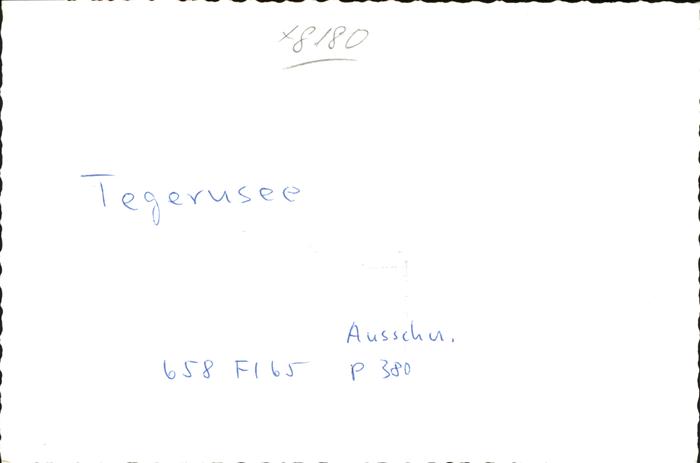 x8180
Tegernsee
Ausschn.
658 F165 P 380